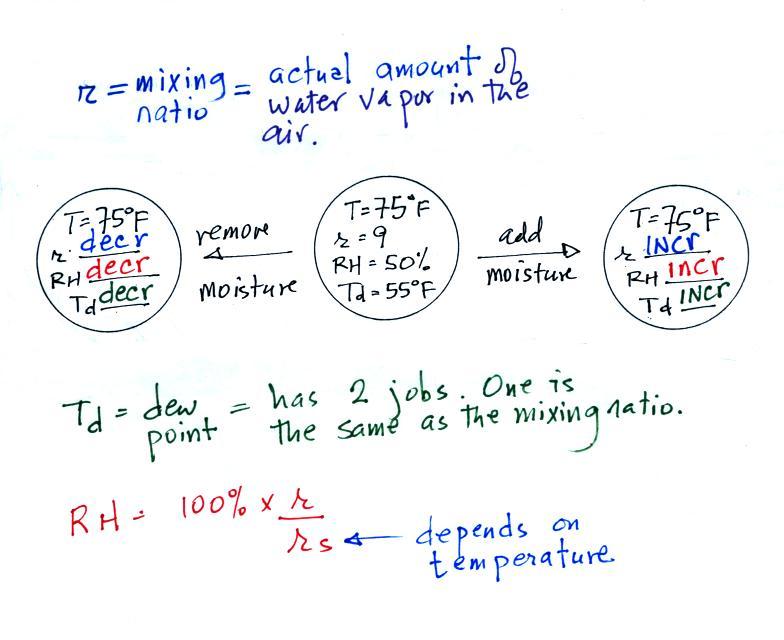 r = mixing ratio = actual amount of
water vapor in the
air.
T = 75°F
r decr
RH decr
Td decr
remove
moisture
T = 75°F
r = 9
RH = 50%
Td = 55°F
add
moisture
T = 75°F
r INCR
RH INCR
Td INCR
Td = dew point = has 2 jobs. One is
the same as the mixing ratio.
RH = 100% x r / rs
depends on
temperature